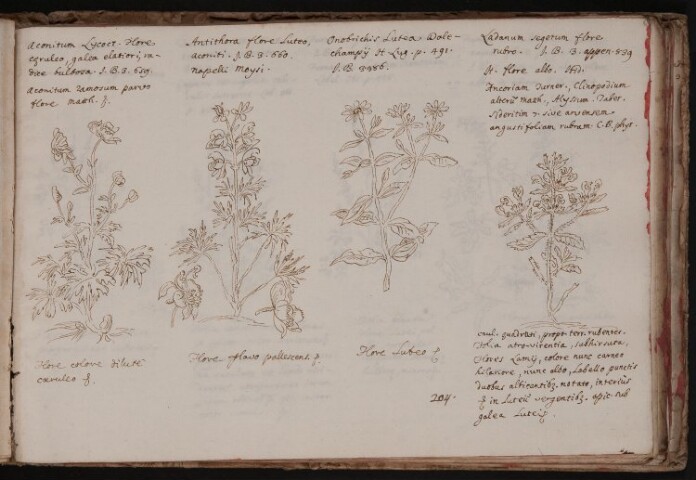 Aconitum Lycoct. flore
cæruleo, galea elatiori, ra-
dice bulbosa. J. B. 3. 659.
Aconitum ramosum parvo
flore math.
Flore colore dilutè
cæruleo
Antithora flore Luteo,
aconiti. J. B. 3. 660.
napelli Moysi.
Flore flavo pallescent
Onobrichis Lutea Dale-
champij H. Lug. p. 491.
J. B. 3386.
Flore Luteo
Ladanum segetum flore
rubro. J. B. 3. appen. 839
It. flore albo. Ibid.
Turner., Clinopodium
alterū Math., Alyssum. Taber.
Sideritim sive arvensem
angustifoliam rubram C. B. phyt.
caul. quadrati, prope terr. rubentes.
Folia atro-virentia, subhirsuta,
Flores Lamij, colore nunc carneo
hilariore, nunc albo, Labello punctis
duobus albicantibꝫ notato, interiùs
in Luteū vergentibꝫ. apic. sub
galea Luteis.
204.